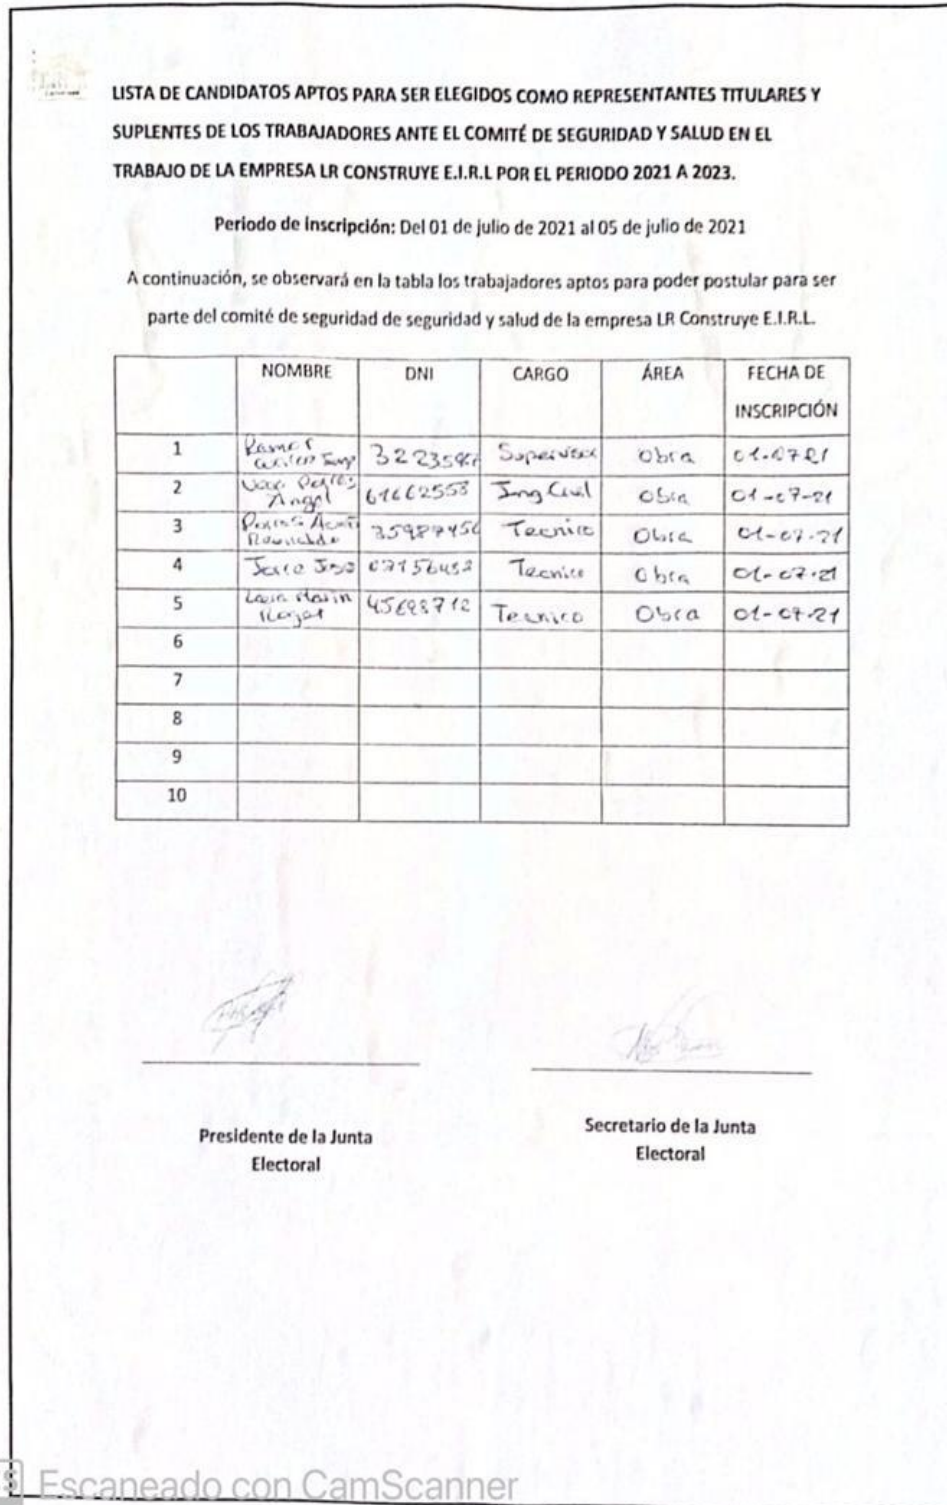 LISTA DE CANDIDATOS APTOS PARA SER ELEGIDOS COMO REPRESENTANTES TITULARES Y
SUPLENTES DE LOS TRABAJADORES ANTE EL COMITÉ DE SEGURIDAD Y SALUD EN EL
TRABAJO DE LA EMPRESA LR CONSTRUYE E.I.R.L POR EL PERIODO 2021 A 2023.
Periodo de inscripción: Del 01 de julio de 2021 al 05 de julio de 2021
A continuación, se observará en la tabla los trabajadores aptos para poder postular para ser
parte del comité de seguridad de seguridad y salud de la empresa LR Construye E.I.R.L.
NOMBRE DNI CARGO ÁREA FECHA DE
INSCRIPCIÓN
1 Supervisor Obra 01-07-21
2 Angel Ing Civil Obra 01-07-21
3 Tecnico Obra 01-07-21
4 Tecnico Obra 01-07-21
5 Tecnico Obra 01-07-21
6
7
8
9
10
Presidente de la Junta
Electoral
Secretario de la Junta
Electoral
Escaneado con CamScanner